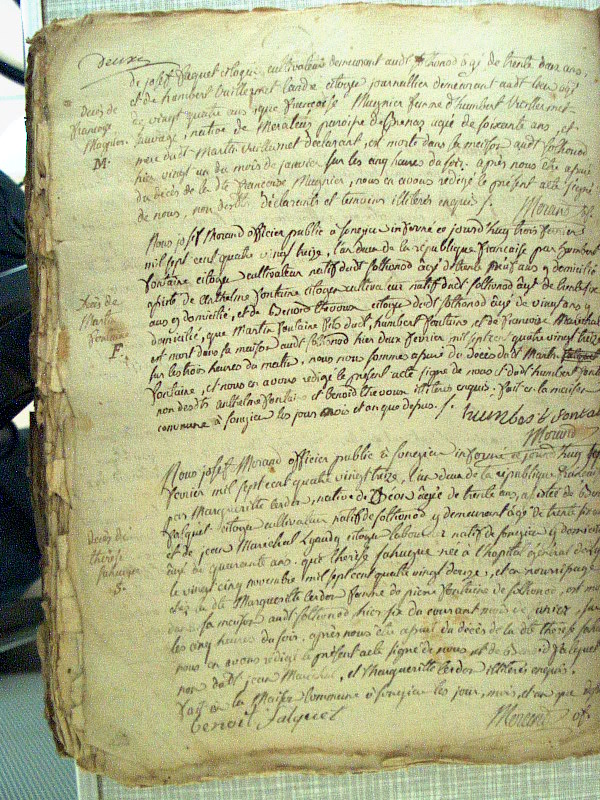 deux
de josef falquet citoyen cultivateur demeurant audt Solhonod âgé de trente deux ans,
et de humbert vuillermet citoyen journallier demeurant audt lieu âgé
de vingt quatre ans, que francoise Magnier femme d'humbert vuillermet
natiee de paroisse de agée de soixante ans, et
mere dudt Martin vuillermet declarant, est morte dans sa maison audt Solhonod
hier vingt un du mois de janvier sur les cinq heures du soir. après nous etre assuré
du décès de la dte francoise Magnier, nous en avons redigé le présent acte signé
de nous, non desdts déclarants et temoins illiteres enquis /. Morand off.
Décès de
francoise
Magnier
M.
Nous josef Morand officier public à Songieu informe ce jourd huy trois fevrier
mil sept cent quatre vingt treize, l'an deux de la republique francoise par humbert
fontaine citoyen cultivateur natif dudt Solhonod âgé de trente neuf ans y domicilié
assisté de Anthelme fontaine citoyen cultivateur natif dudt Solhonod âgé de
ans y domicilié, et de Benoid thevoux citoyen dudt Solhonod âgé de vingt ans y
domicilié, que Martin fontaine fils dudt humbert fontaine, et de francoise Marechal
est mort dans sa maison audt Solhonod hier deux fevrier mil sept cent quatre vingt treize
sur les trois heures du matin, nous nous somme assuré du décès dudt Martin
fontaine, et nous en avons redigé le présent acte signé de nous et dudt humbert fontaine
non desdts anthelme fontaine et benoid thevoux illiteres enquis. fait en la maison
commune à songieu les jour mois et an que dessus /. humbert fontaine
Morand
Décès de
Martin
fontaine
F.
Nous josef Morand officier public à Songieu informe ce jourd huy sept
fevrier mil sept cent quatre vingt treize, l'an deux de la republique francoise
par Marguerille Cerdon, native de agée de trente ans, assistée de Benoid
falquet citoyen cultivateur natif de Solhonod y demeurant âgé de trente
et de jean Marechal citoyen laboureur natif de songieu y domicilié
âgé de quarante ans, que therese née à l'hopital general de
le vingt cinq novembre mil sept cent quatre vingt douze, et en nourrissage
chez la dte Marguerille Cerdon femme de pierre fontaine de Solhonod, est morte
dans sa maison audt Solhonod hier six du courant mois de sur
les cinq heures du soir, après nous etre assuré du décès de la dte therese
nous en avons redigé le présent acte signé de nous et de Benoid falquet
non dudt jean Marechal, et Marguerille Cerdon illiteres enquis.
fait en la Maison Commune à songieu les jour, mois, et an que dessus
benoit falquet Morand off.
Décès de
therese